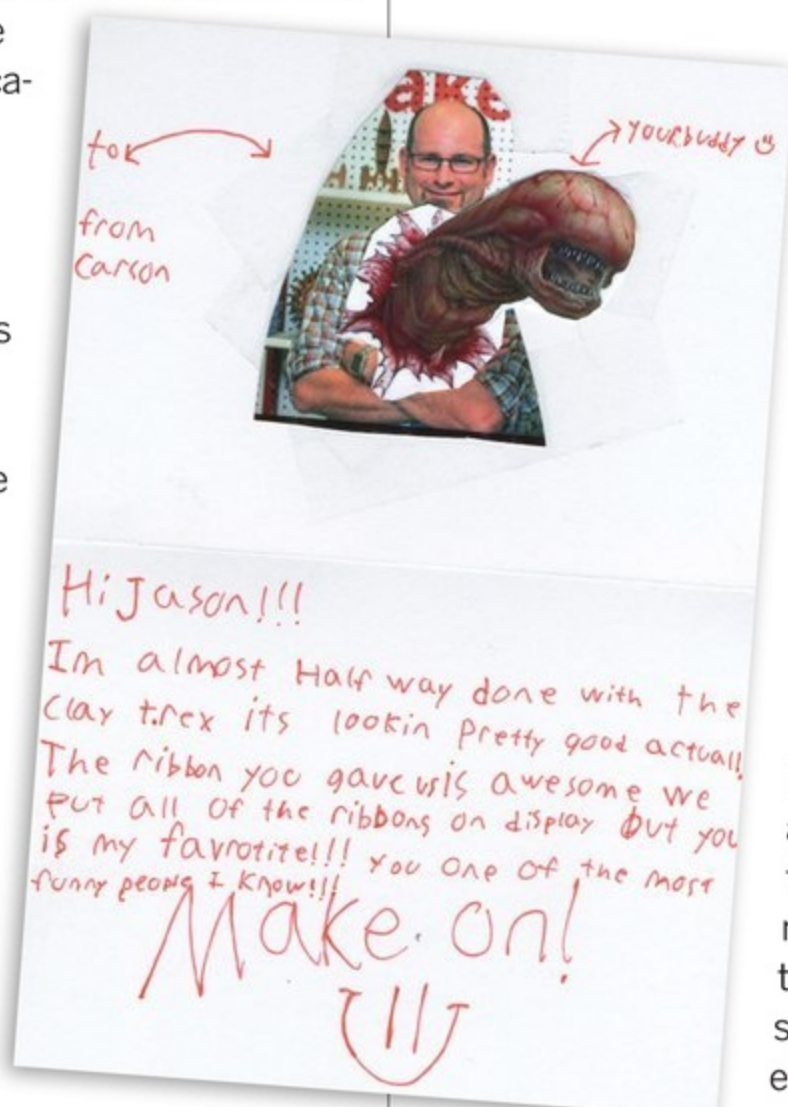 ake
to
yourbuddy
from
Carson
Hi Jason!!!
Im almost Half way done with the
Clay t.rex its lookin pretty good actuall
The ribbon you gave us is awesome we
put all of the ribbons on display but you
is my favrotite!!! you one of the most
funny people I know!!!
Make on!
e
ca-
s
e
a
t
s
e